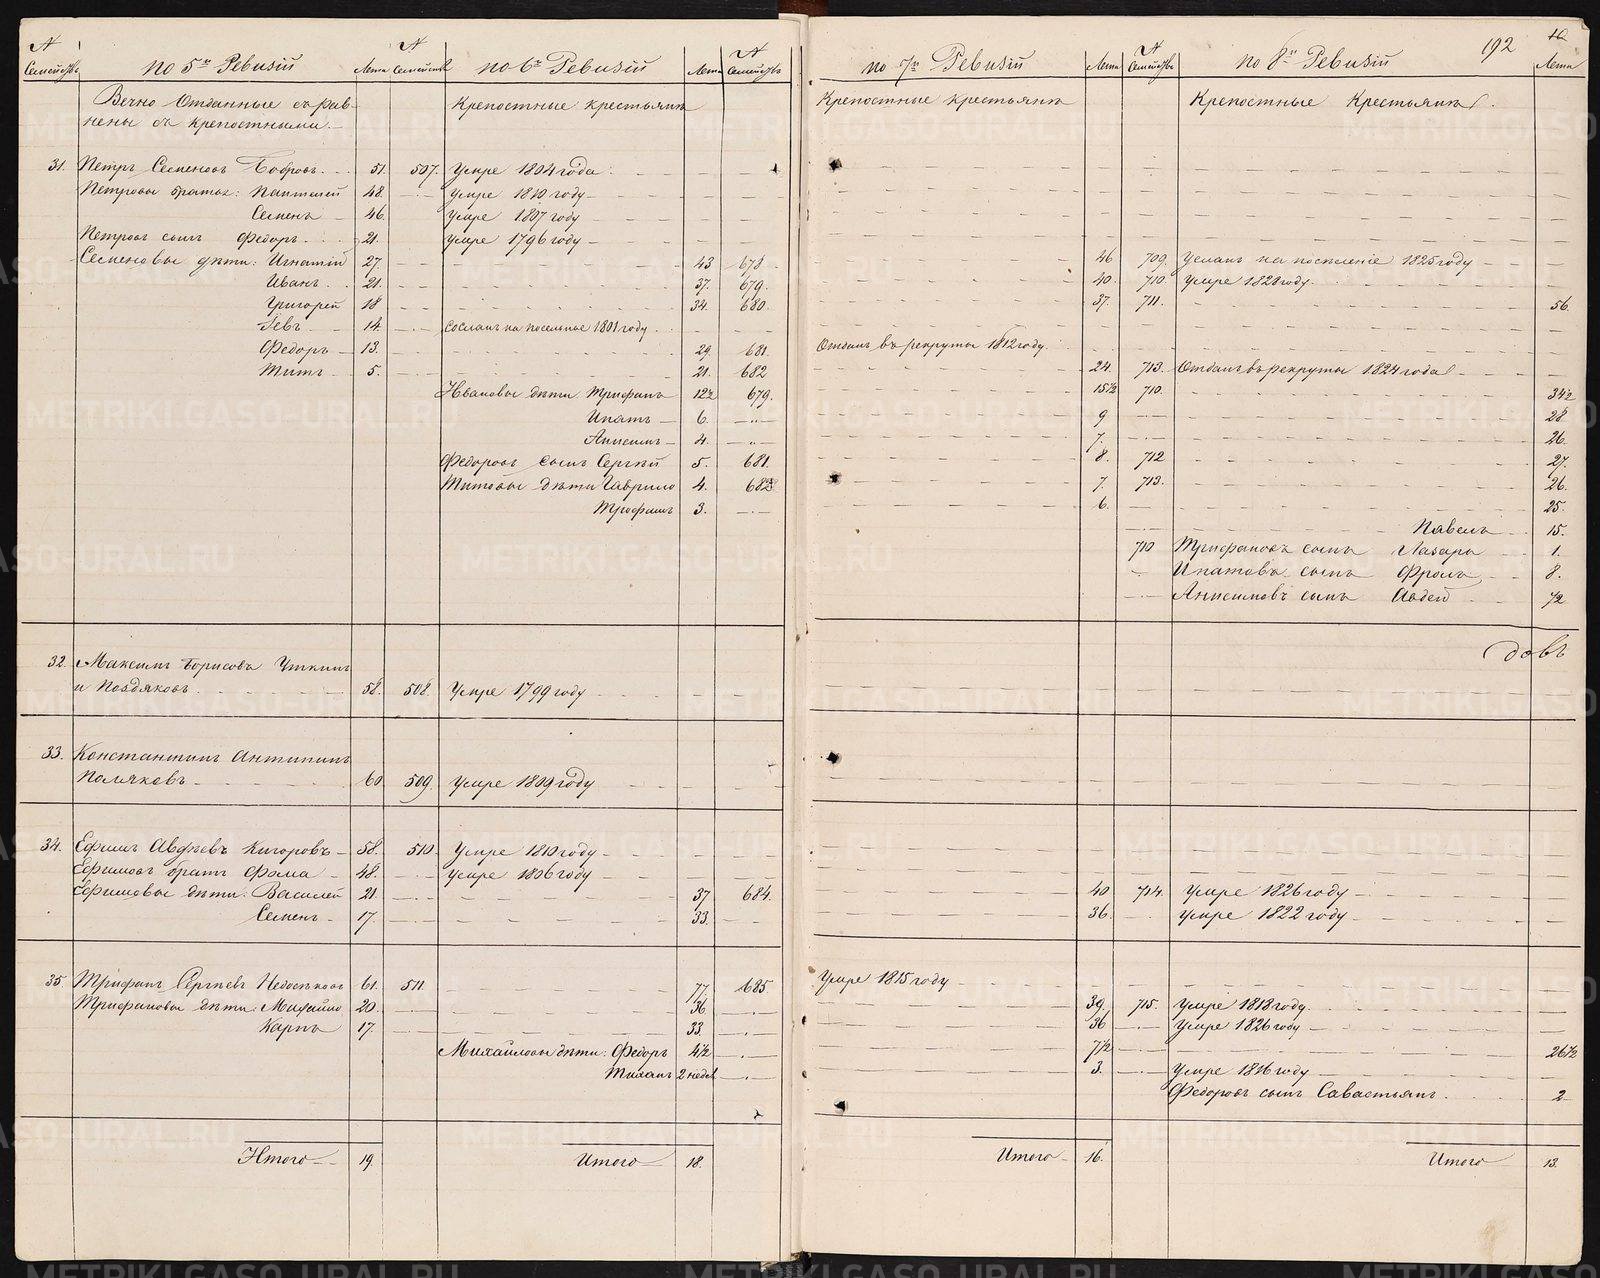 № Семействъ по 5й Ревизiи Лета № Семействъ по 6й Ревизiи Лета № Семействъ
Вечно Отданные сърав- Крепостные крестьяня
нены съ крепостными.
31. Петръ Семеновъ Бобровъ 51. 507. Умре 1804 года.
Петровы братья: Пантелей 48. Умре 1810 году
Семенъ 46. Умре 1807 году
Петровъ сынъ Федоръ 21. Умре 1796 году
Семеновы дѣти: Игнатiй 27. 43 678
Иванъ 21. 37. 679.
Григорей 18 34. 680.
14. сосланъ на поселенiе 1801 году
Федоръ 13. 29. 681.
Титъ 5. 21. 682
Ивановы дѣти Трифанъ 12½ 679.
Ипатъ 6. -"-
Анисимъ 4. -"-
Федоровъ сынъ Сергѣй 5. 681.
Титовы дѣти Гаврило 4. 682
Трофимъ 3.
32. Максимъ Борисовъ Уткинъ
и Поздяковъ 58. 508. Умре 1799 году
33. Константинъ Антипинъ
Поляковъ 60. 509. Умре 1809 году
34. Ефимъ Авдѣевъ Кигоровъ 58. 510. Умре 1810 году
Ефимовъ братъ Фома 48. Умре 1806 году
Ефимовы дѣти: Василей 21. 37 684.
Семенъ 17. 33.
35. Трифанъ Сергѣевъ 61. 511. 77. 685
Трифановы дѣти: Михайло 20. 36
Карпъ 17. 33.
Михайловы дѣти: Федоръ 4½
2 недел
Итого 19. Итого 18.
192 10
по 7й Ревизiи Лета № Семействъ по 8й Ревизiи Лета
Крепостные крестьяня Крепостные Крестьяня.
46 709. Усланъ на поселенiе 1825 году
40. 710. Умре 1828 году.
37. 711. 56.
Отданъ въ рекруты 1812 году.
24. 713. Отданъ въ рекруты 1824 года
15½ 710. 34½
9 28
7. 26.
8. 712 27.
7. 713. 26.
6. 25.
Павелъ 15.
710 Трифановъ сынъ Лазарь 1.
Ипатовъ сынъ Фролъ 8.
Анисимовъ сынъ Авдей ½
довъ
40 714. Умре 1826 году
36. Умре 1822 году
Умре 1815 году
39. 715. Умре 1818 году.
36 Умре 1826 году
7½ 26½
3. Умре 1816 году
Федоровъ сынъ Савастьянъ. 2
Итого 16. Итого 13.
METRIKI.GASO-URAL.RU